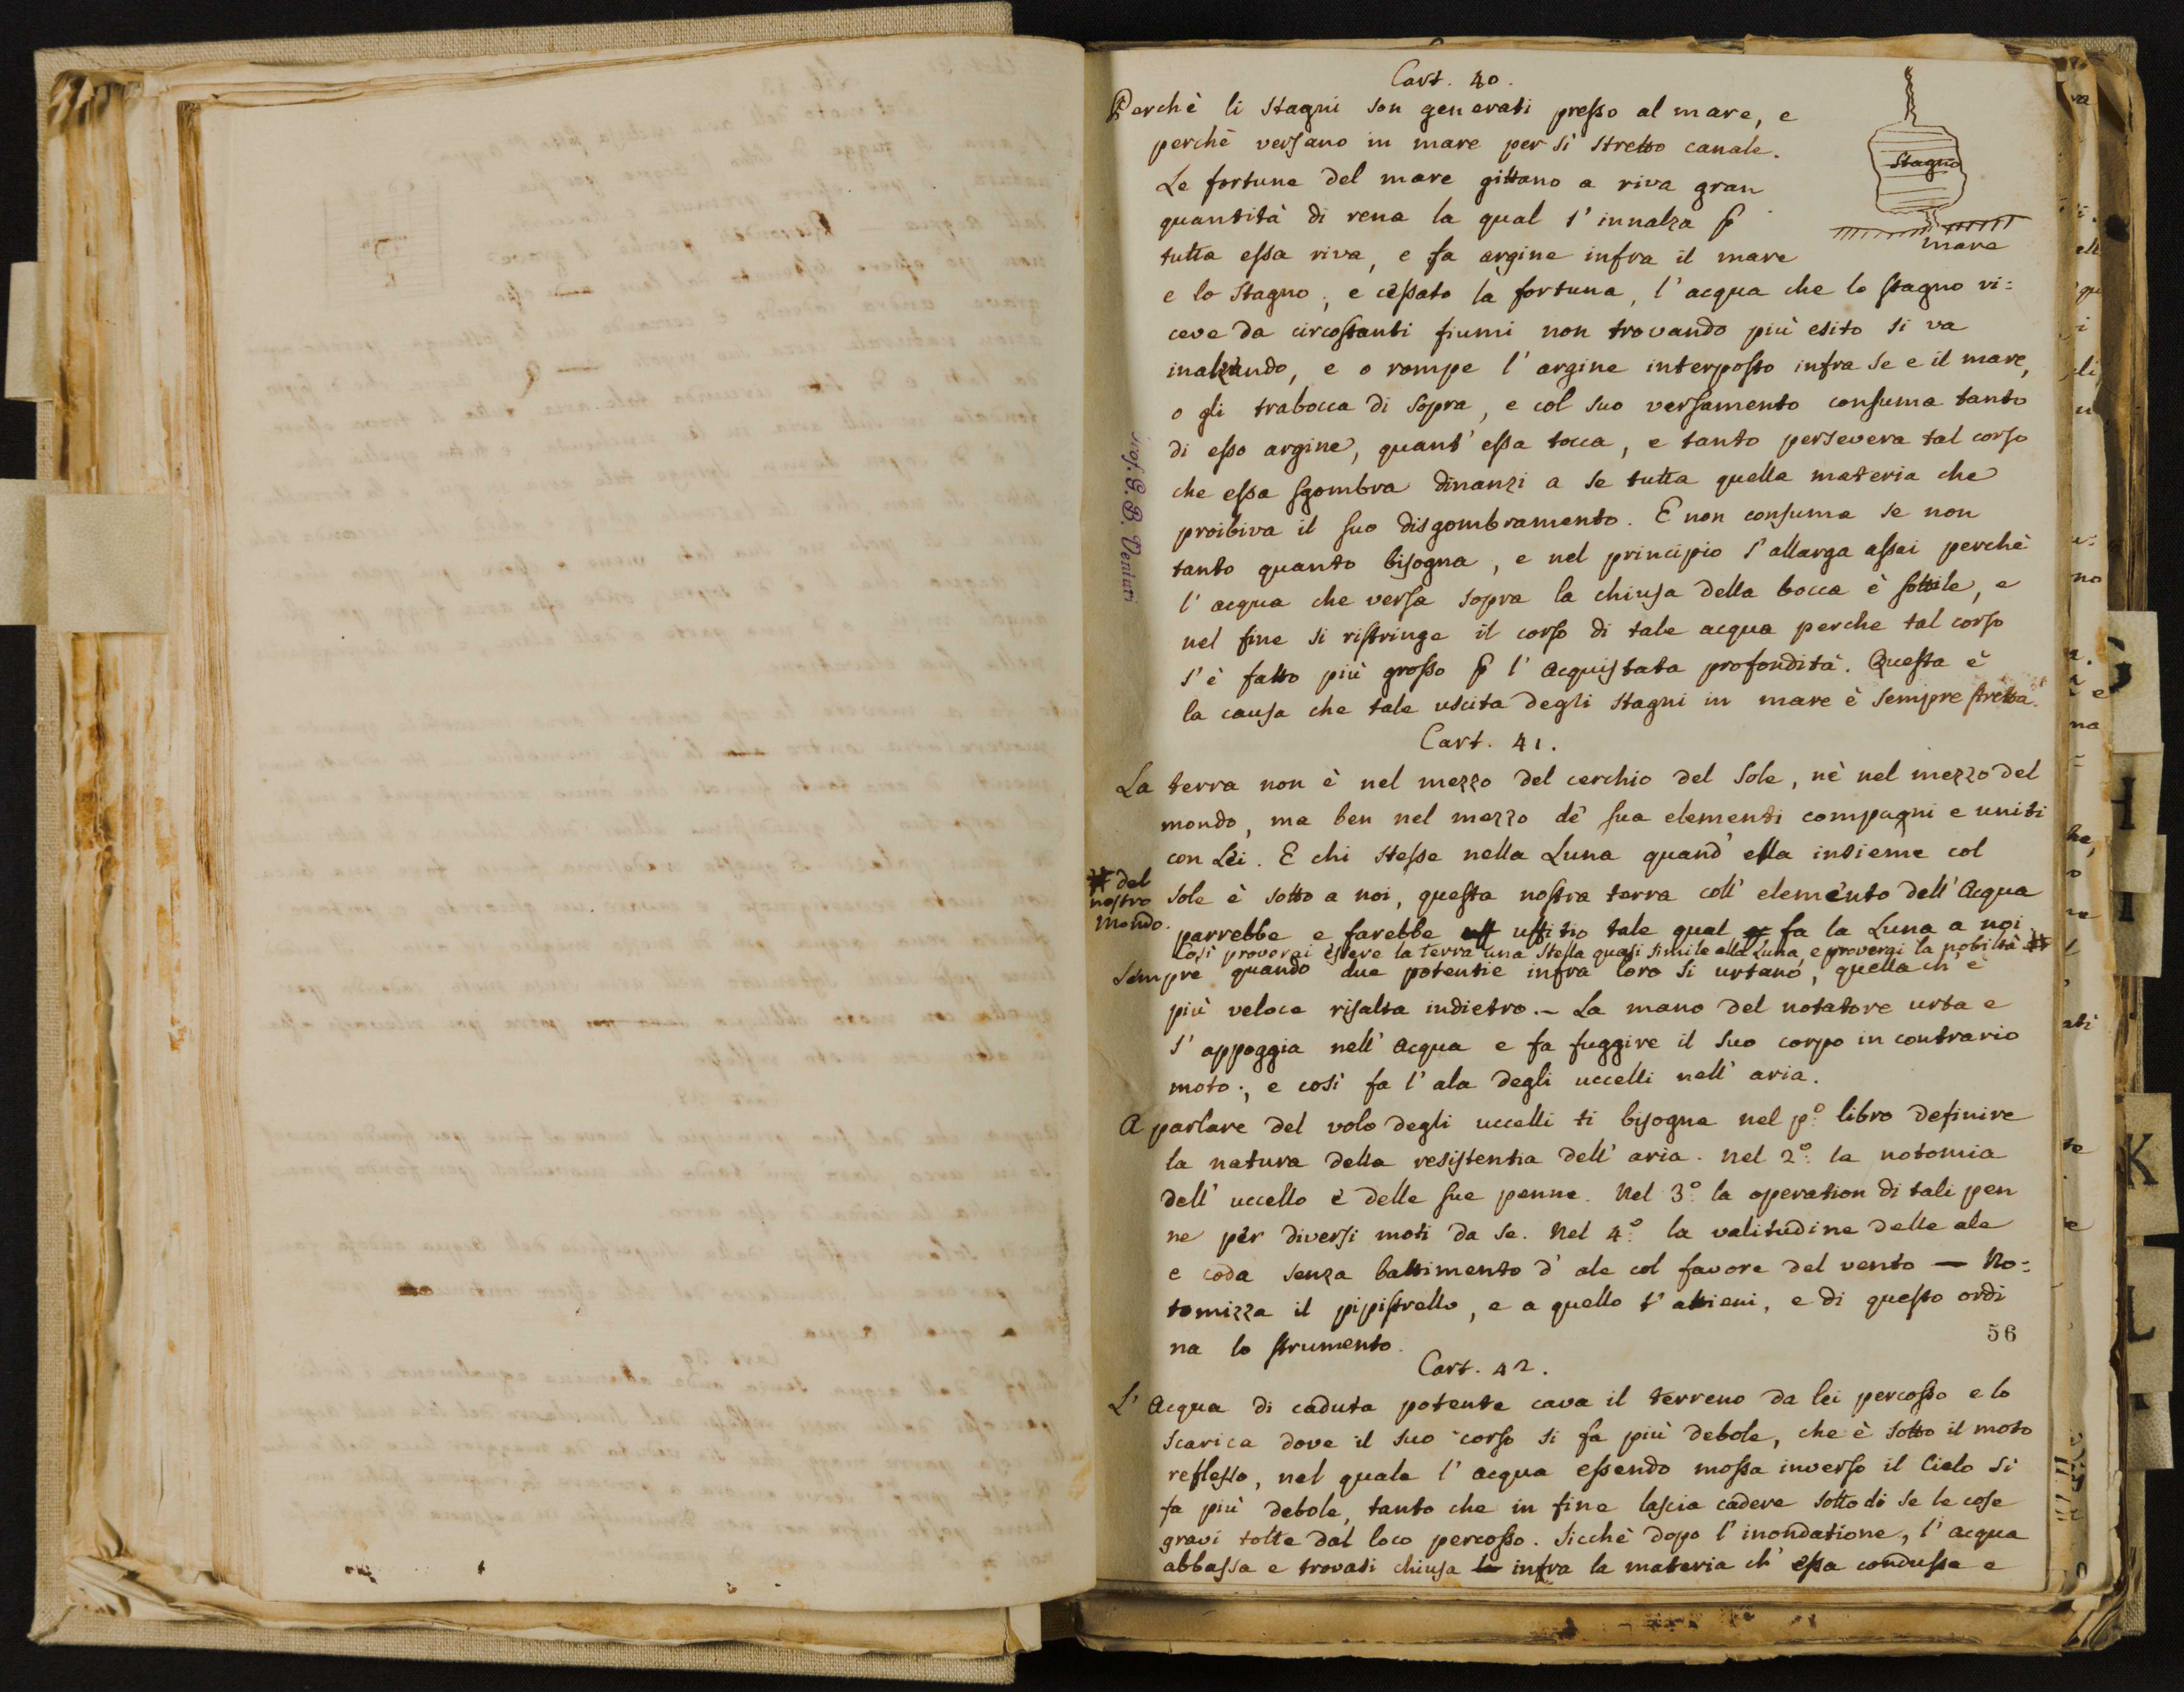 Cart. 40.
Perchè li stagni son generati presso al mare, e
perchè versano in mare per sì stretto canale.
Le fortune del mare gittano a riva gran
quantità di rena la qual s'innalza ꝑ
tutta essa riva, e fa argine infra il mare
e lo stagno; e cessato la fortuna, l'acqua che lo stagno ri=
ceve da circostanti fiumi non trovando più esito si va
inalzando, e o rompe l'argine interposto infra se e il mare,
o gli trabocca di sopra, e col suo versamento consuma tanto
di esso argine, quant'essa tocca, e tanto persevera tal corso
che essa sgombra dinanzi a se tutta quella materia che
proibiva il suo disgombramento. E non consuma se non
tanto quanto bisogna, e nel principio s'allarga assai perchè
l'acqua che versa sopra la chiusa della bocca è sottile, e
nel fine si ristringe il corso di tale acqua perche tal corso
s'è fatto più grosso ꝑ l'acquistata profondità. Questa è
la causa che tale uscita degli stagni in mare è sempre stretta.
Stagno
mare
Prof. G. B. Venturi
Cart. 41.
La terra non è nel mezzo del cerchio del Sole, nè nel mezzo del
mondo, ma ben nel mezzo de' sua elementi compagni e uniti
con Lei. E chi stesse nella Luna quand'ella insieme col
sole è sotto a noi, questa nostra terra coll'elemento dell'Acqua
parrebbe e farebbe uffitio tale qual fa la Luna a noi.
Così proverai essere la terra una stella quasi simile alla Luna, e proverai la nobiltà #
# del
nostro
mondo.
Sempre quando due potentie infra loro si urtano, quella ch'è
più veloce risalta indietro. - La mano del notatore urta e
s'appoggia nell'acqua e fa fuggire il suo corpo in contrario
moto; e così fa l'ala degli uccelli nell'aria.
A parlare del volo degli uccelli ti bisogna nel pº. libro definire
la natura della resistentia dell'aria. Nel 2º. la notomia
dell'uccello e delle sue penne. Nel 3º. la operation di tali pen
ne per diversi moti da se. Nel 4º. la valitudine delle ale
e coda senza battimento d'ale col favore del vento — No=
tomizza il pipistrello, e a quello t'attieni, e di questo ordi
na lo strumento.
56
Cart. 42.
L'Acqua di caduta potente cava il terreno da lei percosso e lo
scarica dove il suo corso si fa più debole, che è sotto il moto
reflesso, nel quale l'acqua essendo mossa inverso il Cielo si
fa più debole, tanto che in fine lascia cadere sotto di se le cose
gravi tolte dal loco percosso. Sicchè dopo l'inondatione, l'acqua
abbassa e trovasi chiusa infra la materia ch'essa condusse e
K
L